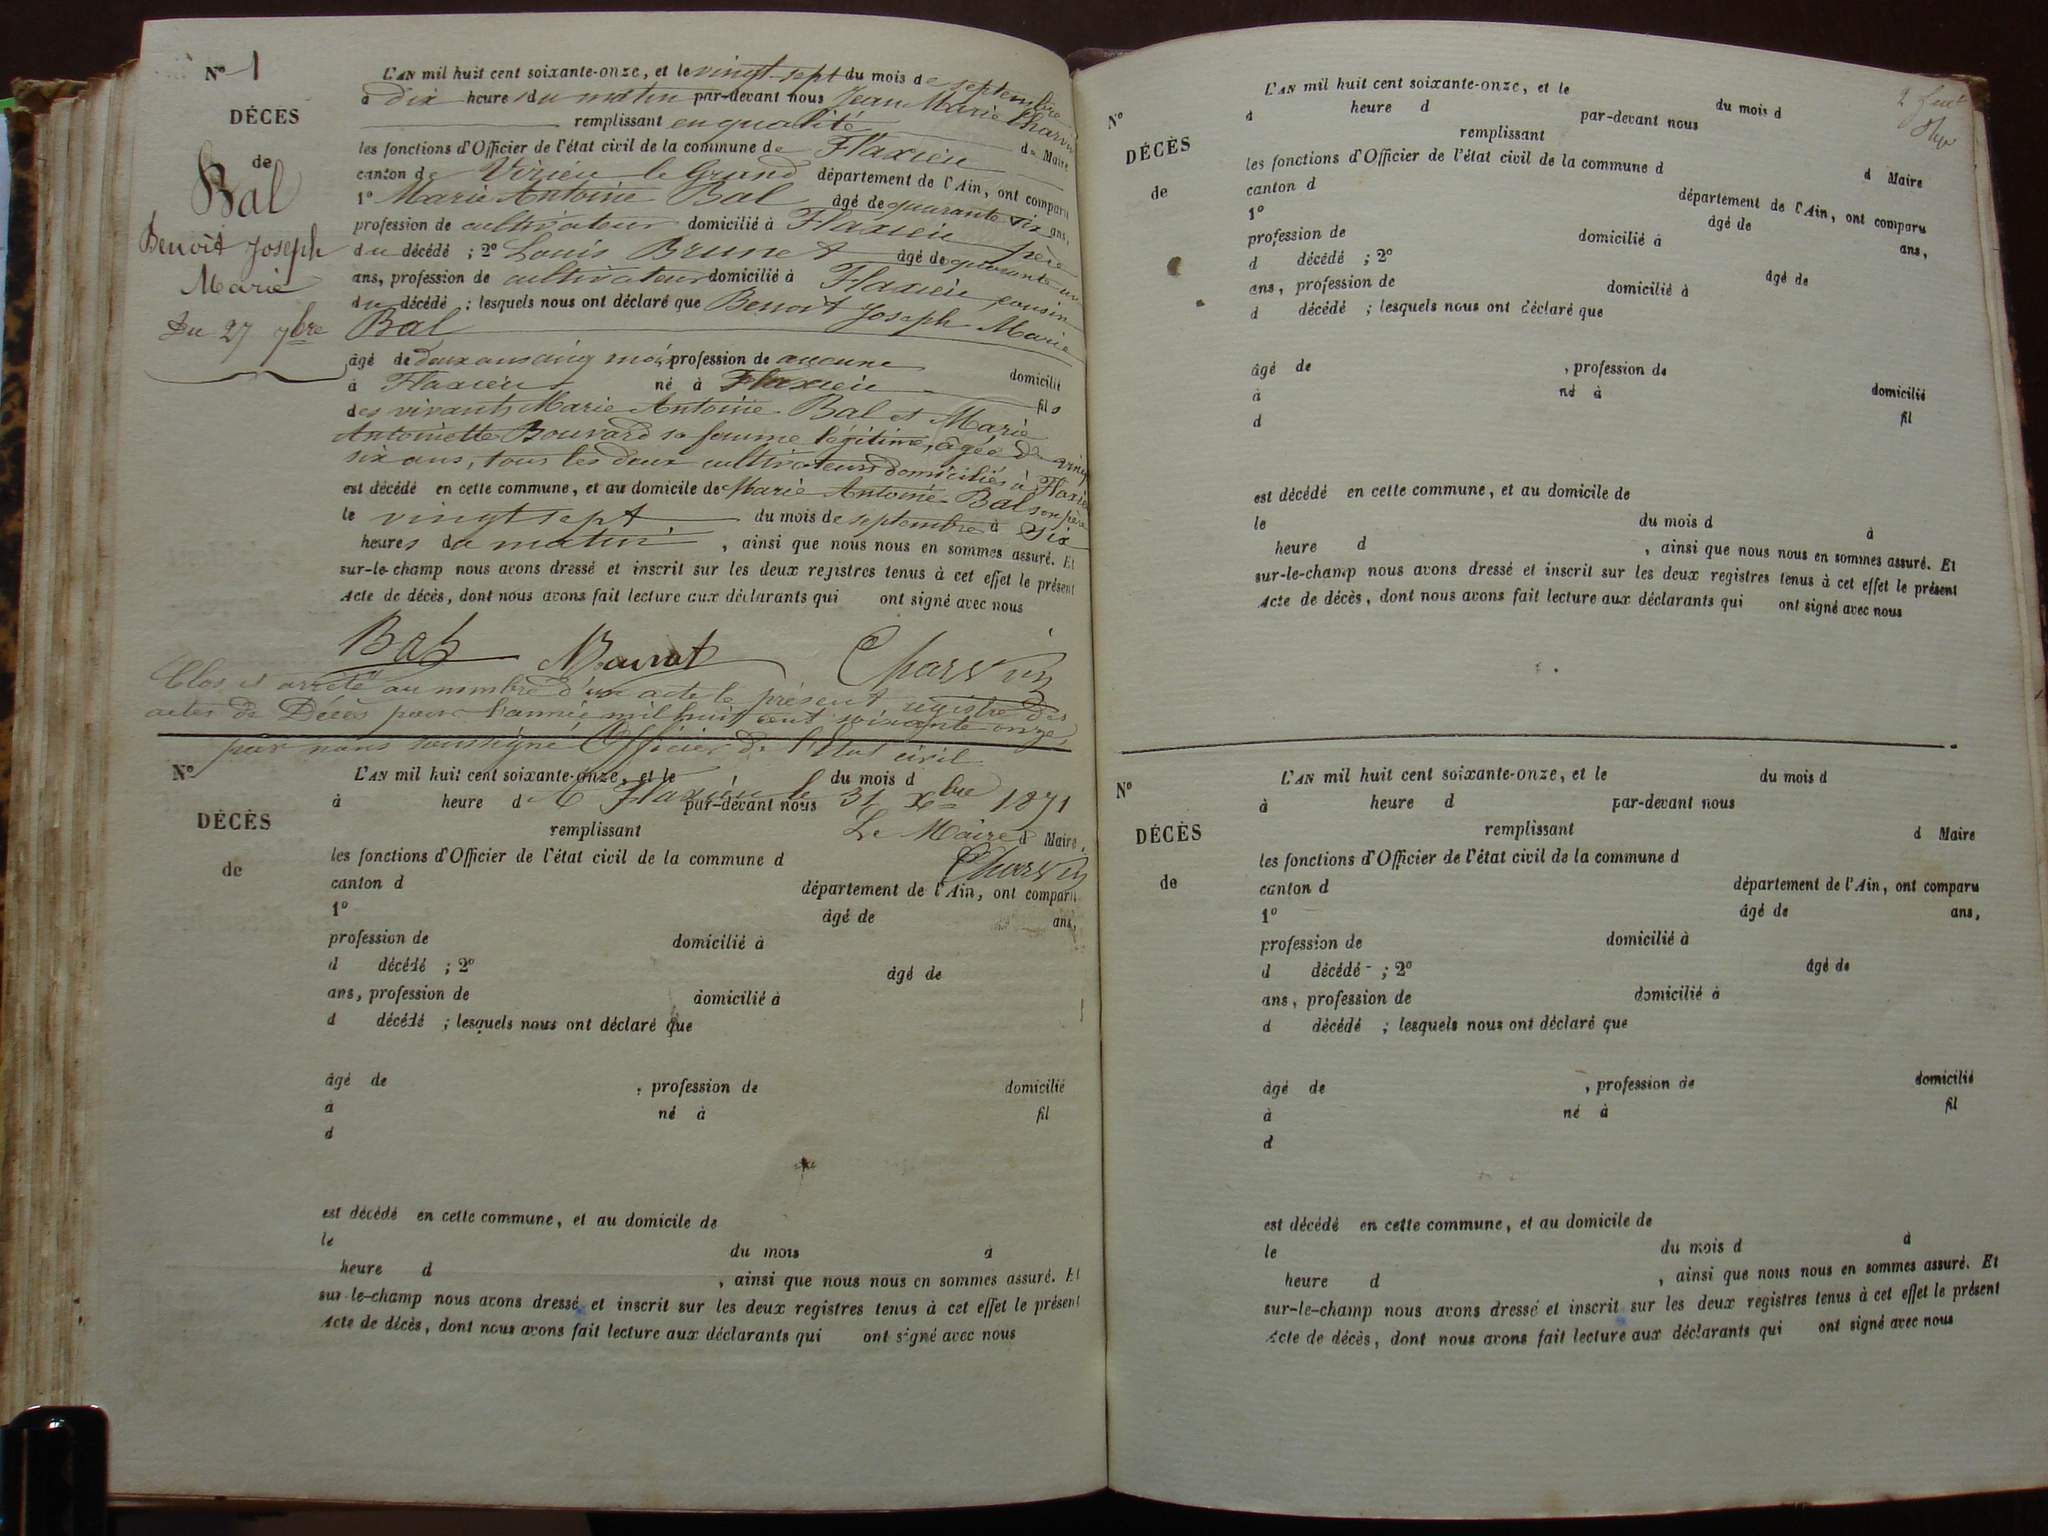 N° 1
DÉCÈS
de
Bal
Benoit Joseph
Marie
Du 27 7bre
L'AN mil huit cent soixante-onze, et le vingt-sept du mois de septembre
à dix heures du matin par-devant nous Jean Marie Charvin
remplissant en qualité de Maire
les fonctions d'Officier de l'état civil de la commune de Flaxieu
canton de Virieu le Grand département de l'Ain, ont comparu
1° Marie Antoine Bal âgé de quarante six ans,
profession de cultivateur domicilié à Flaxieu père
du décédé ; 2° Louis Brunet âgé de quarante un
ans, profession de cultivateur domicilié à Flaxieu cousin
du décédé ; lesquels nous ont déclaré que Benoit Joseph Marie
Bal
âgé de deux ans cinq mois, profession de aucune domicilié
à Flaxieu né à Flaxieu fils
des vivants Marie Antoine Bal et Marie
Antoinette Bouvard sa femme légitime, âgée de
six ans, tous les deux cultivateurs domiciliés à Flaxieu
est décédé en cette commune, et au domicile de Marie Antoine Bal son père
le vingt sept du mois de septembre à six
heures du matin, ainsi que nous nous en sommes assuré. Et
sur-le-champ nous avons dressé et inscrit sur les deux registres tenus à cet effet le présent
Acte de décès, dont nous avons fait lecture aux déclarants qui ont signé avec nous
Bal Charvin
Clos et arrêté au nombre d'un acte le présent registre des
actes de Décès pour l'année mil huit cent soixante onze,
par nous soussigné Officier de l'Etat civil
A Flaxieu le 31 Xbre 1871
Le Maire
Charvin
N°
DÉCÈS
de
L'AN mil huit cent soixante-onze, et le du mois d
à heure d par-devant nous
remplissant d Maire,
les fonctions d'Officier de l'état civil de la commune d
canton d département de l'Ain, ont comparu
1° âgé de ans,
profession de domicilié à
d décédé ; 2° âgé de
ans, profession de domicilié à
d décédé ; lesquels nous ont déclaré que
âgé de , profession de domicilié
à né à fil
d
est décédé en cette commune, et au domicile de
le du mois à
heure d , ainsi que nous nous en sommes assuré. Et
sur-le-champ nous avons dressé et inscrit sur les deux registres tenus à cet effet le présent
Acte de décès, dont nous avons fait lecture aux déclarants qui ont signé avec nous
2
N°
DÉCÈS
de
L'AN mil huit cent soixante-onze, et le du mois d
à heure d par-devant nous
remplissant d Maire
les fonctions d'Officier de l'état civil de la commune d
canton d département de l'Ain, ont comparu
1° âgé de ans,
profession de domicilié à
d décédé ; 2° âgé de
ans, profession de domicilié à
d décédé ; lesquels nous ont déclaré que
âgé de , profession de domicilié
à né à fil
d
est décédé en cette commune, et au domicile de
le du mois d à
heure d , ainsi que nous nous en sommes assuré. Et
sur-le-champ nous avons dressé et inscrit sur les deux registres tenus à cet effet le présent
Acte de décès, dont nous avons fait lecture aux déclarants qui ont signé avec nous
N°
DÉCÈS
de
L'AN mil huit cent soixante-onze, et le du mois d
à heure d par-devant nous
remplissant d Maire
les fonctions d'Officier de l'état civil de la commune d
canton d département de l'Ain, ont comparu
1° âgé de ans,
profession de domicilié à
d décédé ; 2° âgé de
ans, profession de domicilié à
d décédé ; lesquels nous ont déclaré que
âgé de , profession de domicilié
à né à fil
d
est décédé en cette commune, et au domicile de
le du mois d à
heure d , ainsi que nous nous en sommes assuré. Et
sur-le-champ nous avons dressé et inscrit sur les deux registres tenus à cet effet le présent
Acte de décès, dont nous avons fait lecture aux déclarants qui ont signé avec nous